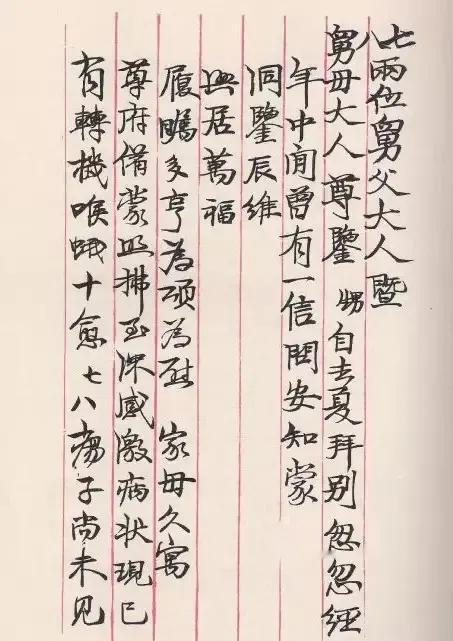 七八兩位舅父大人暨
舅母大人尊鑒 甥自去夏拜别忽忽經
年中间曾有一信問安知蒙
洞鑒辰維
興居萬福
履鷗多亨為頌為慰 家母久寓
尊府備蒙照拂至深感激病狀現已
有轉機喉蛾十愈七八瘍子尚未見